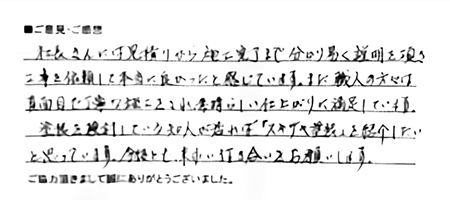 ■ご意見・ご感想
社長さんには見積りから施工完了まで分かり易く説明を頂き
工事を依頼して本当に良かったと感じています。また職人の方々は
真面目で丁寧な 素晴らしい仕上がりに満足しています。
塗装を検討している知人が居れば「スキガラ塗装」を紹介したい
と思っています。今後とも末永い付き合いをお願いします。
ご協力頂きまして誠にありがとうございました。